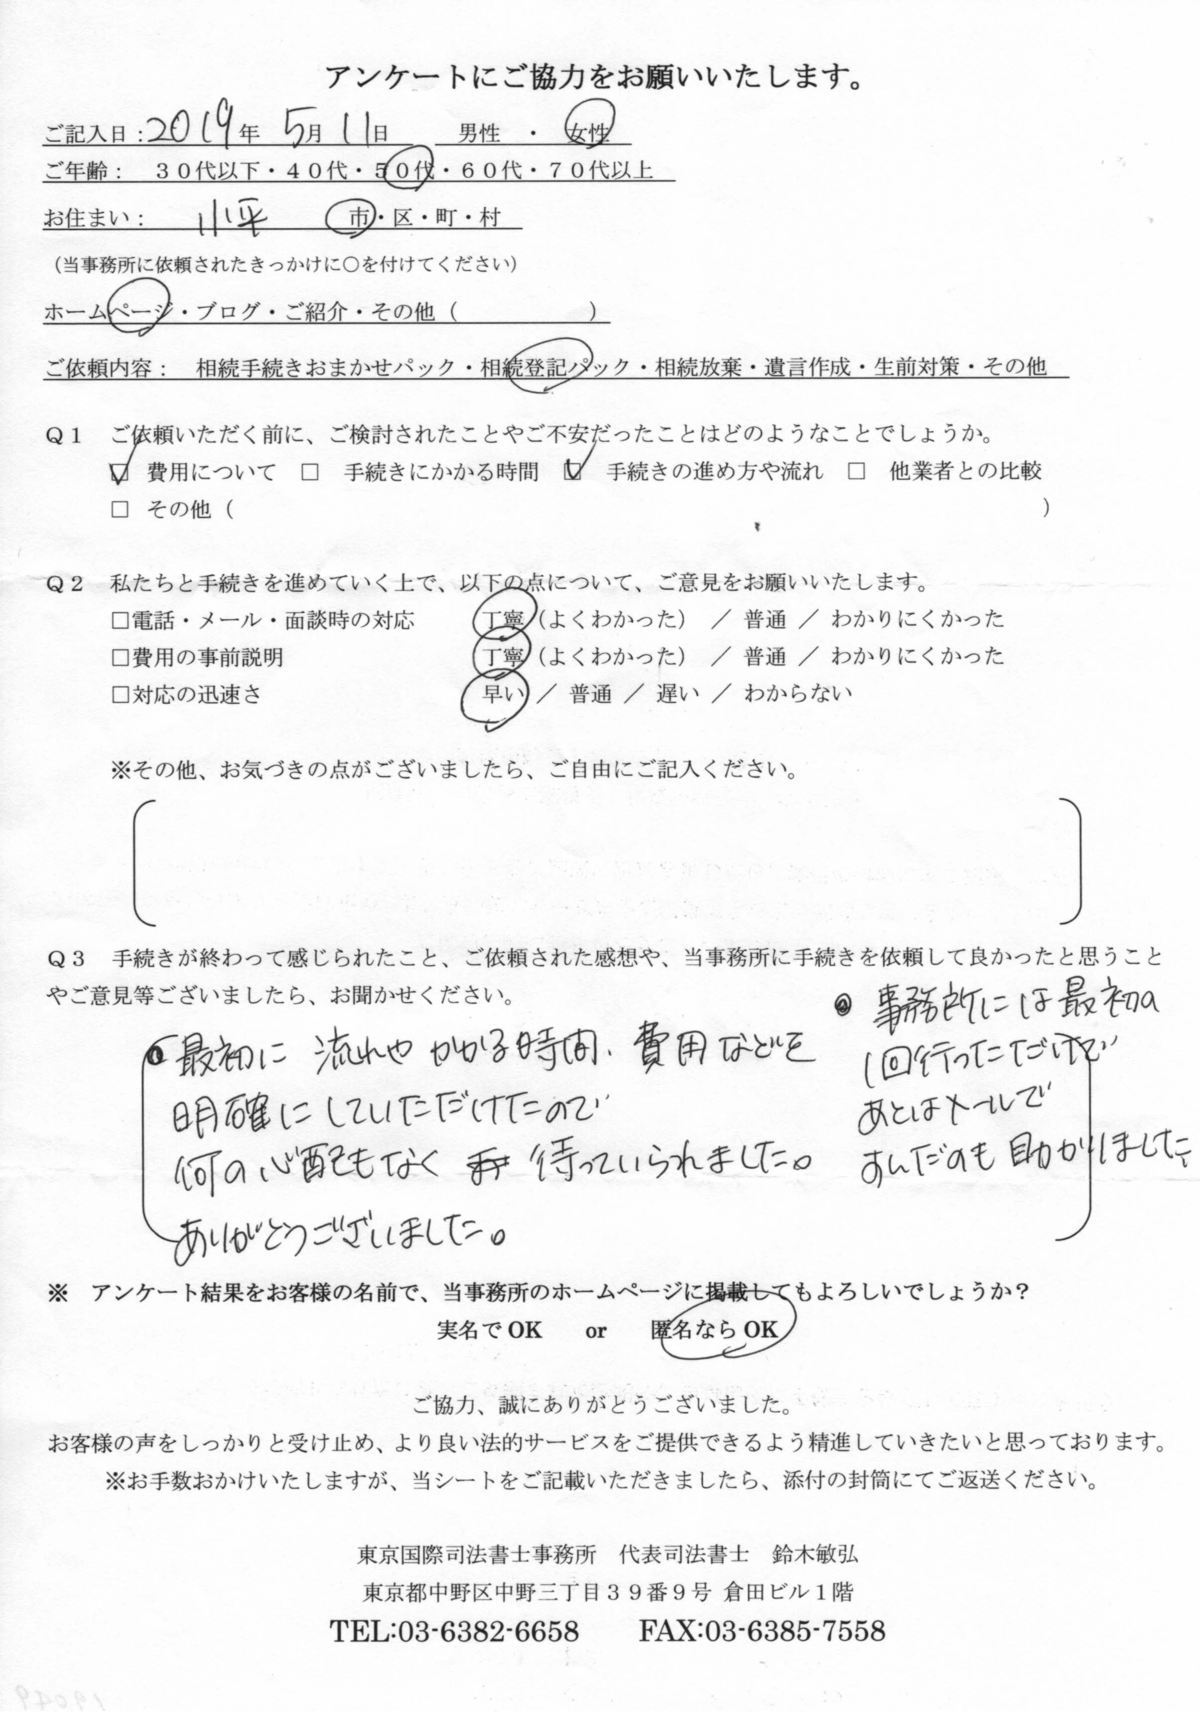 アンケートにご協力をお願いいたします。
ご記入日：2019年 5月 11日　男性　・　女性
ご年齢：　３０代以下・４０代・５０代・６０代・７０代以上
お住まい：　小平　市・区・町・村
（当事務所に依頼されたきっかけに○を付けてください）
ホームページ・ブログ・ご紹介・その他（　　　　　　）
ご依頼内容：　相続手続きおまかせパック・相続登記パック・相続放棄・遺言作成・生前対策・その他
Ｑ１　ご依頼いただく前に、ご検討されたことやご不安だったことはどのようなことでしょうか。
☑ 費用について　□ 手続きにかかる時間　☑ 手続きの進め方や流れ　□ 他業者との比較
□ その他（　　　　　　）
Ｑ２　私たちと手続きを進めていく上で、以下の点について、ご意見をお願いいたします。
□電話・メール・面談時の対応　丁寧（よくわかった）　／　普通　／　わかりにくかった
□費用の事前説明　丁寧（よくわかった）　／　普通　／　わかりにくかった
□対応の迅速さ　早い　／　普通　／　遅い　／　わからない
※その他、お気づきの点がございましたら、ご自由にご記入ください。
Ｑ３　手続きが終わって感じられたこと、ご依頼された感想や、当事務所に手続きを依頼して良かったと思うこと
やご意見等ございましたら、お聞かせください。
● 最初に 流れや かかる時間、費用などを
明確にしていただけたので
何の心配もなく 待っていられました。
ありがとうございました。
● 事務所には最初の
1回行っただけで
あとはメールで
すんだのも助かりました
※　アンケート結果をお客様の名前で、当事務所のホームページに掲載してもよろしいでしょうか？
実名でOK　or　匿名ならOK
ご協力、誠にありがとうございました。
お客様の声をしっかりと受け止め、より良い法的サービスをご提供できるよう精進していきたいと思っております。
※お手数おかけいたしますが、当シートをご記載いただきましたら、添付の封筒にてご返送ください。
東京国際司法書士事務所　代表司法書士　鈴木敏弘
東京都中野区中野三丁目３９番９号 倉田ビル１階
TEL:03-6382-6658　FAX:03-6385-7558